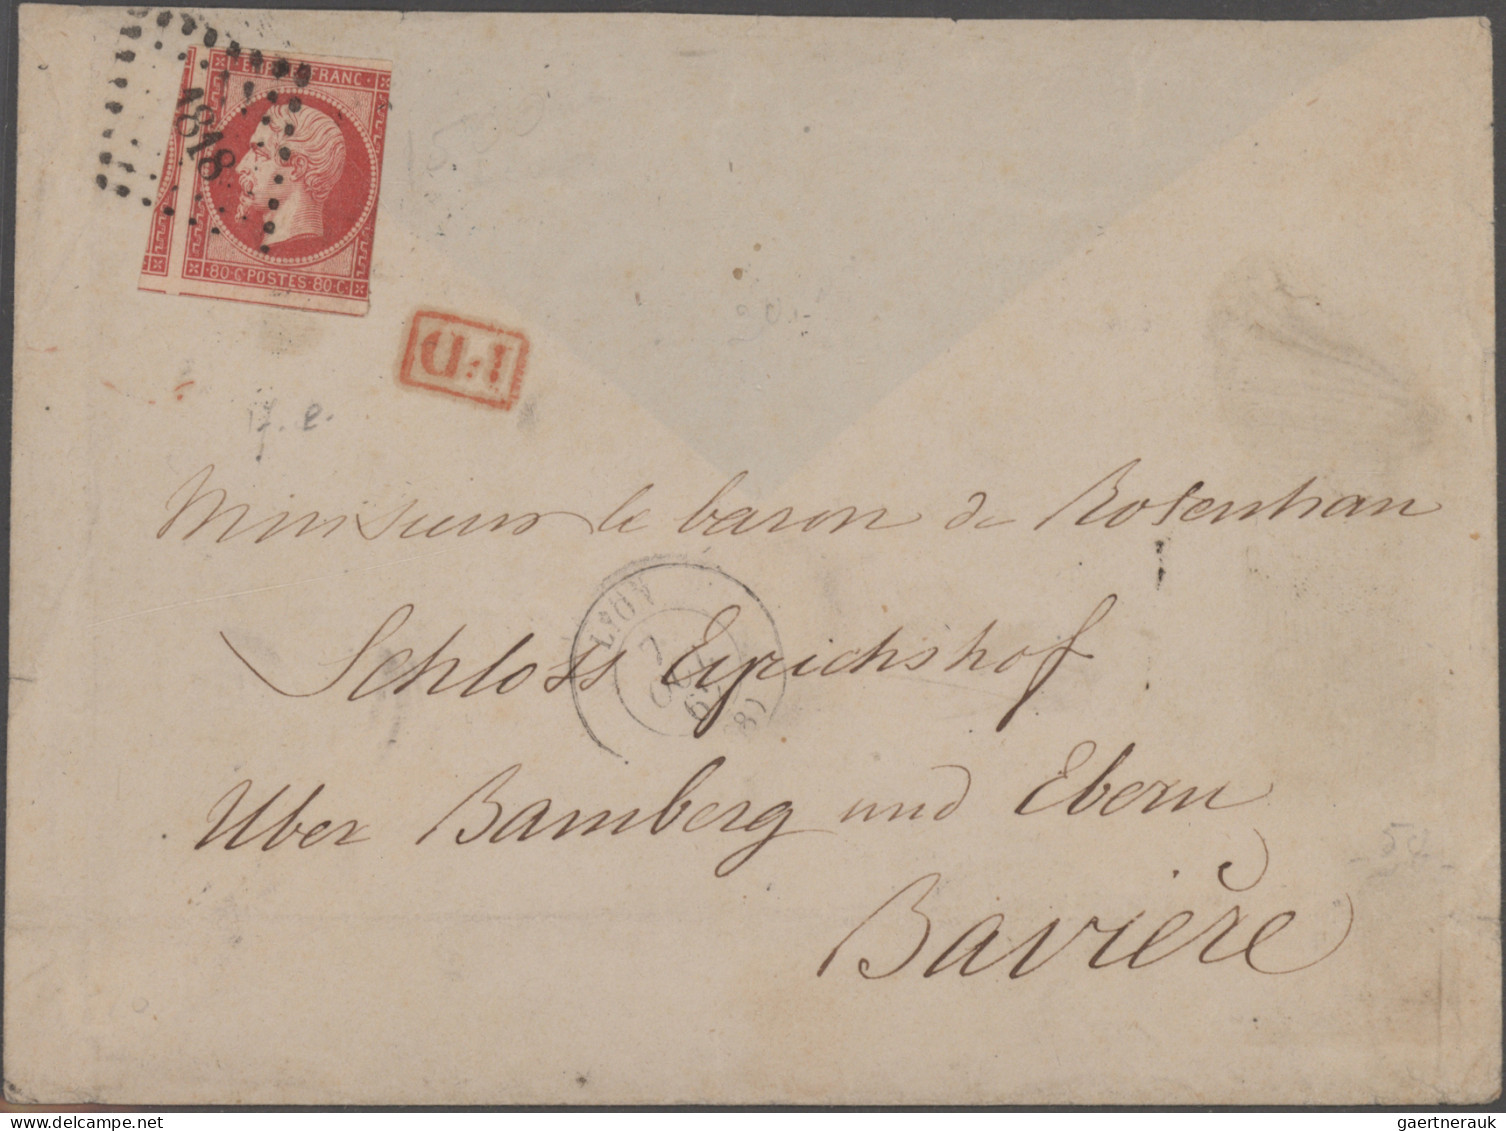 EMPIRE FRANC
1818
80·C POSTES 80·C
P.D
Monsieur le baron de Rotenhan
LYON
(68)
Schloss Eyrichshof
Uber Bamberg und Ebern
Bavière
54
gaertnerauk